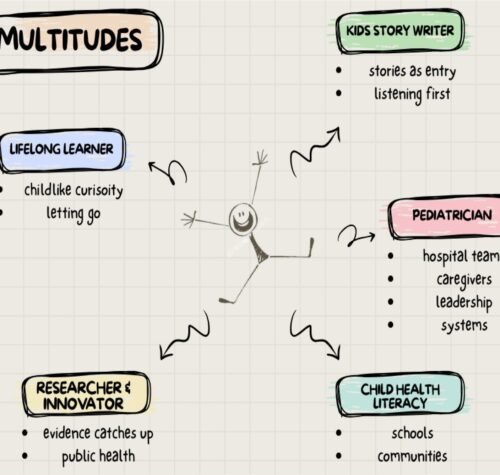 MULTITUDES
KIDS STORY WRITER
stories as entry
listening first
LIFELONG LEARNER
childlike curisoity
letting go
PEDIATRICIAN
hospital team
caregivers
leadership
systems
RESEARCHER &
INNOVATOR
evidence catches up
public health
CHILD HEALTH
LITERACY
schools
communities